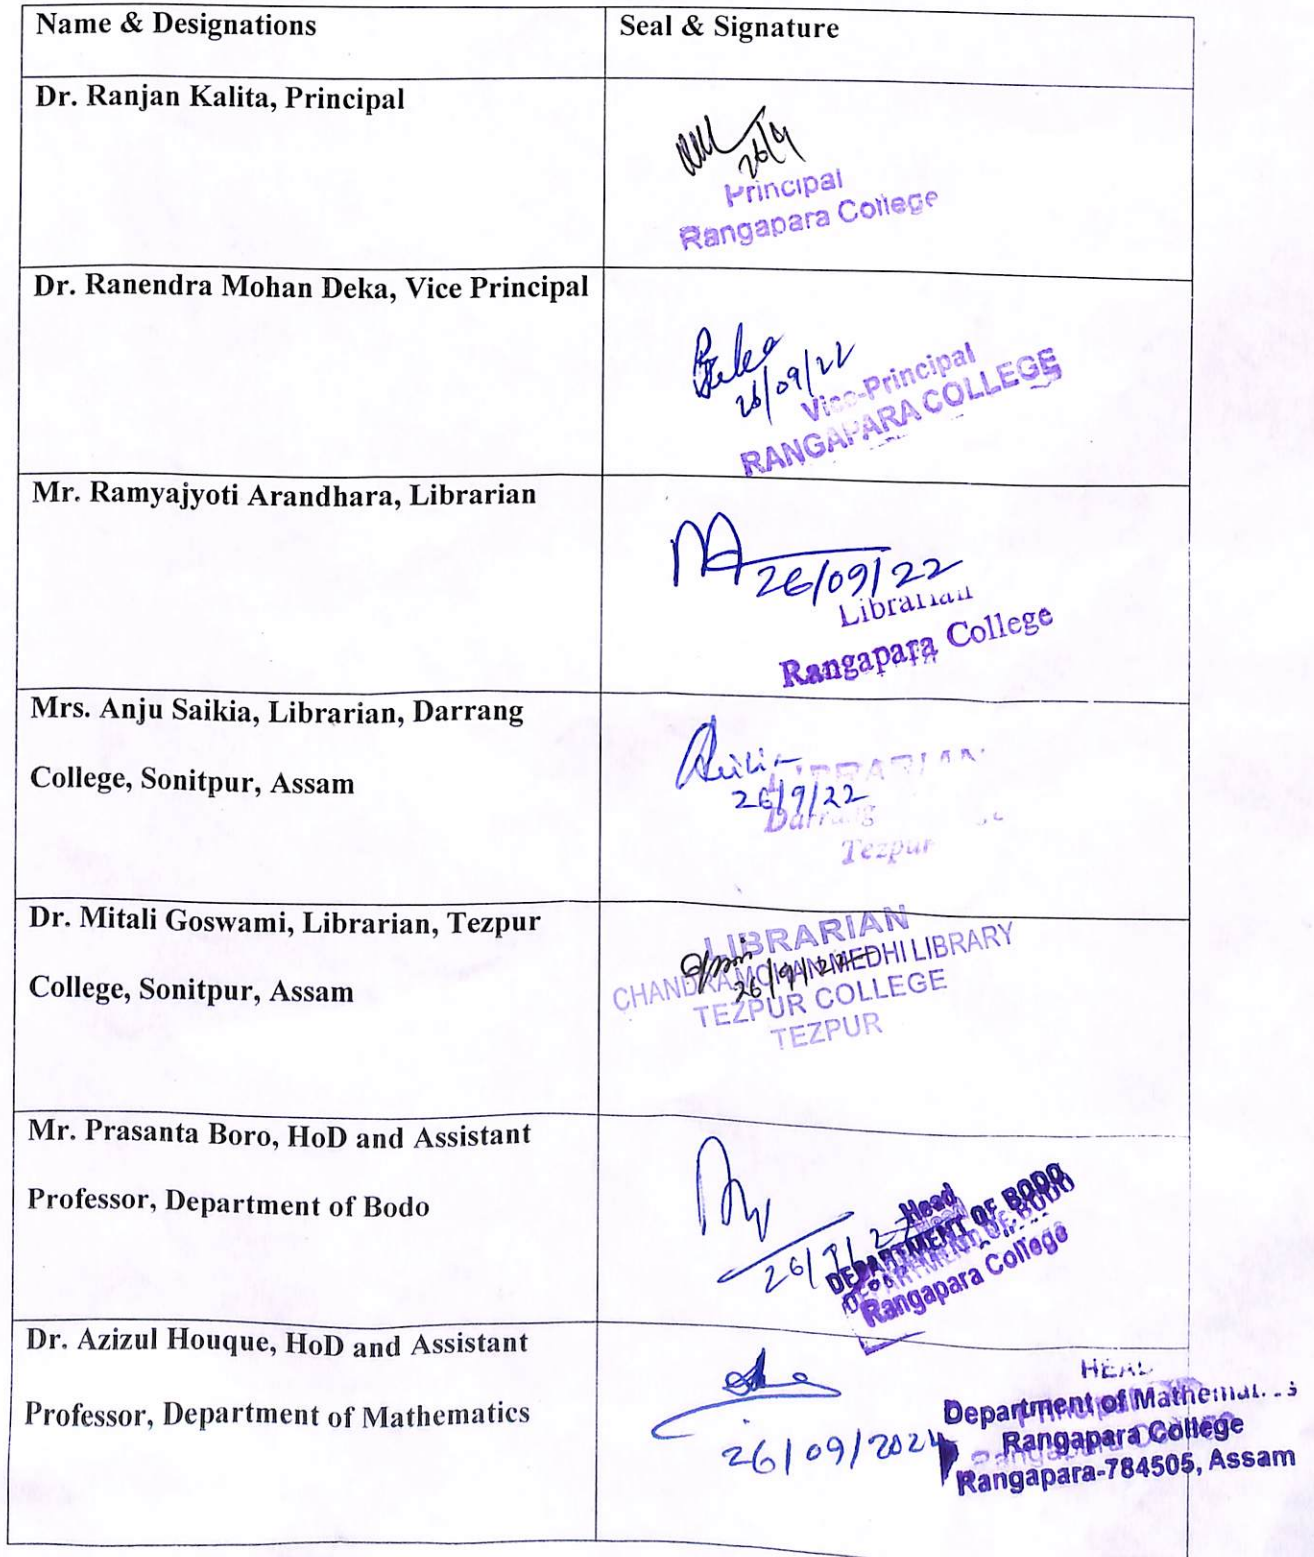 Name & Designations
Seal & Signature
Dr. Ranjan Kalita, Principal
26/9
Principal
Rangapara College
Dr. Ranendra Mohan Deka, Vice Principal
26/09/22
Vice-Principal
RANGAPARA COLLEGE
Mr. Ramyajyoti Arandhara, Librarian
26/09/22
Librarian
Rangapara College
Mrs. Anju Saikia, Librarian, Darrang
College, Sonitpur, Assam
26/9/22
LIBRARIAN
Darrang
Tezpur
Dr. Mitali Goswami, Librarian, Tezpur
College, Sonitpur, Assam
26/9/22
LIBRARIAN
CHANDRA MOHAN MEDHI LIBRARY
TEZPUR COLLEGE
TEZPUR
Mr. Prasanta Boro, HoD and Assistant
Professor, Department of Bodo
26/9/22
Head
DEPARTMENT OF BODO
Rangapara College
Dr. Azizul Houque, HoD and Assistant
Professor, Department of Mathematics
26/09/2024
HEAD
Department of Mathematics
Rangapara College
Rangapara-784505, Assam